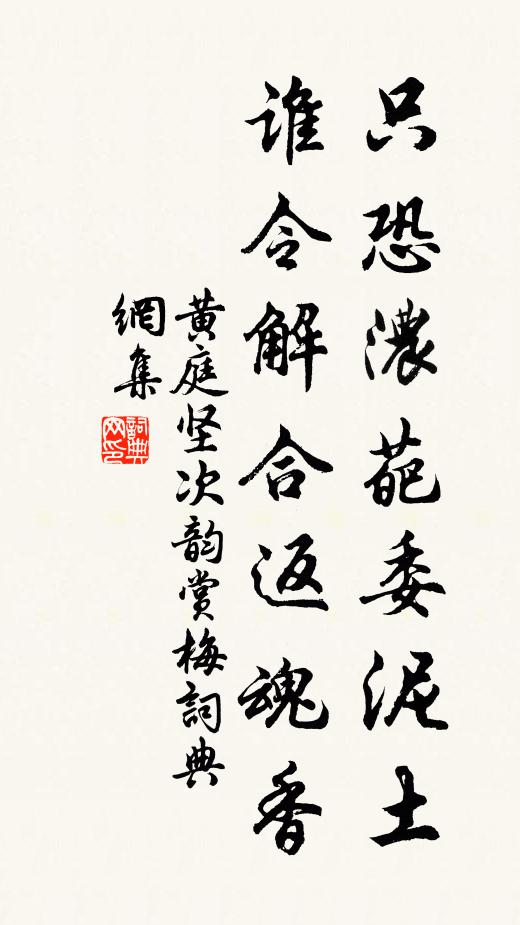 只恐濃葩委泥土
谁令解合返魂香
黄庭坚次韵赏梅詞典
網集
詞典網印